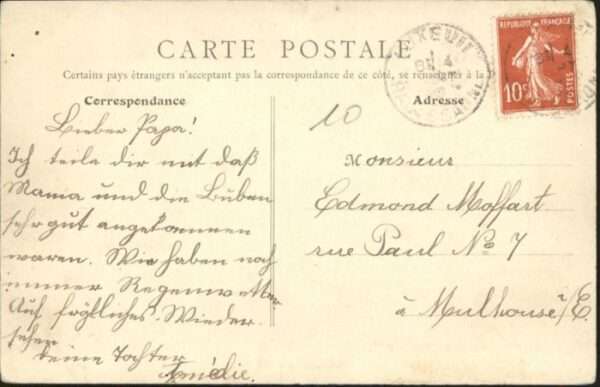 CARTE POSTALE
Certains pays étrangers n'acceptant pas la correspondance de ce côté, se renseigner à la
Correspondance
Adresse
RÉPUBLIQUE FRANÇAISE
10c
POSTES
10
Lieber Papa!
Ich teile dir mit daß
Mama und die Buben
sehr gut angekommen
waren. Wir haben noch
immer Regenwetter.
Auf fröhliches Wieder
sehen
deine Tochter
Amélie.
Monsieur
Edmond Moffart
rue Paul No 7
à Mulhouse/E.